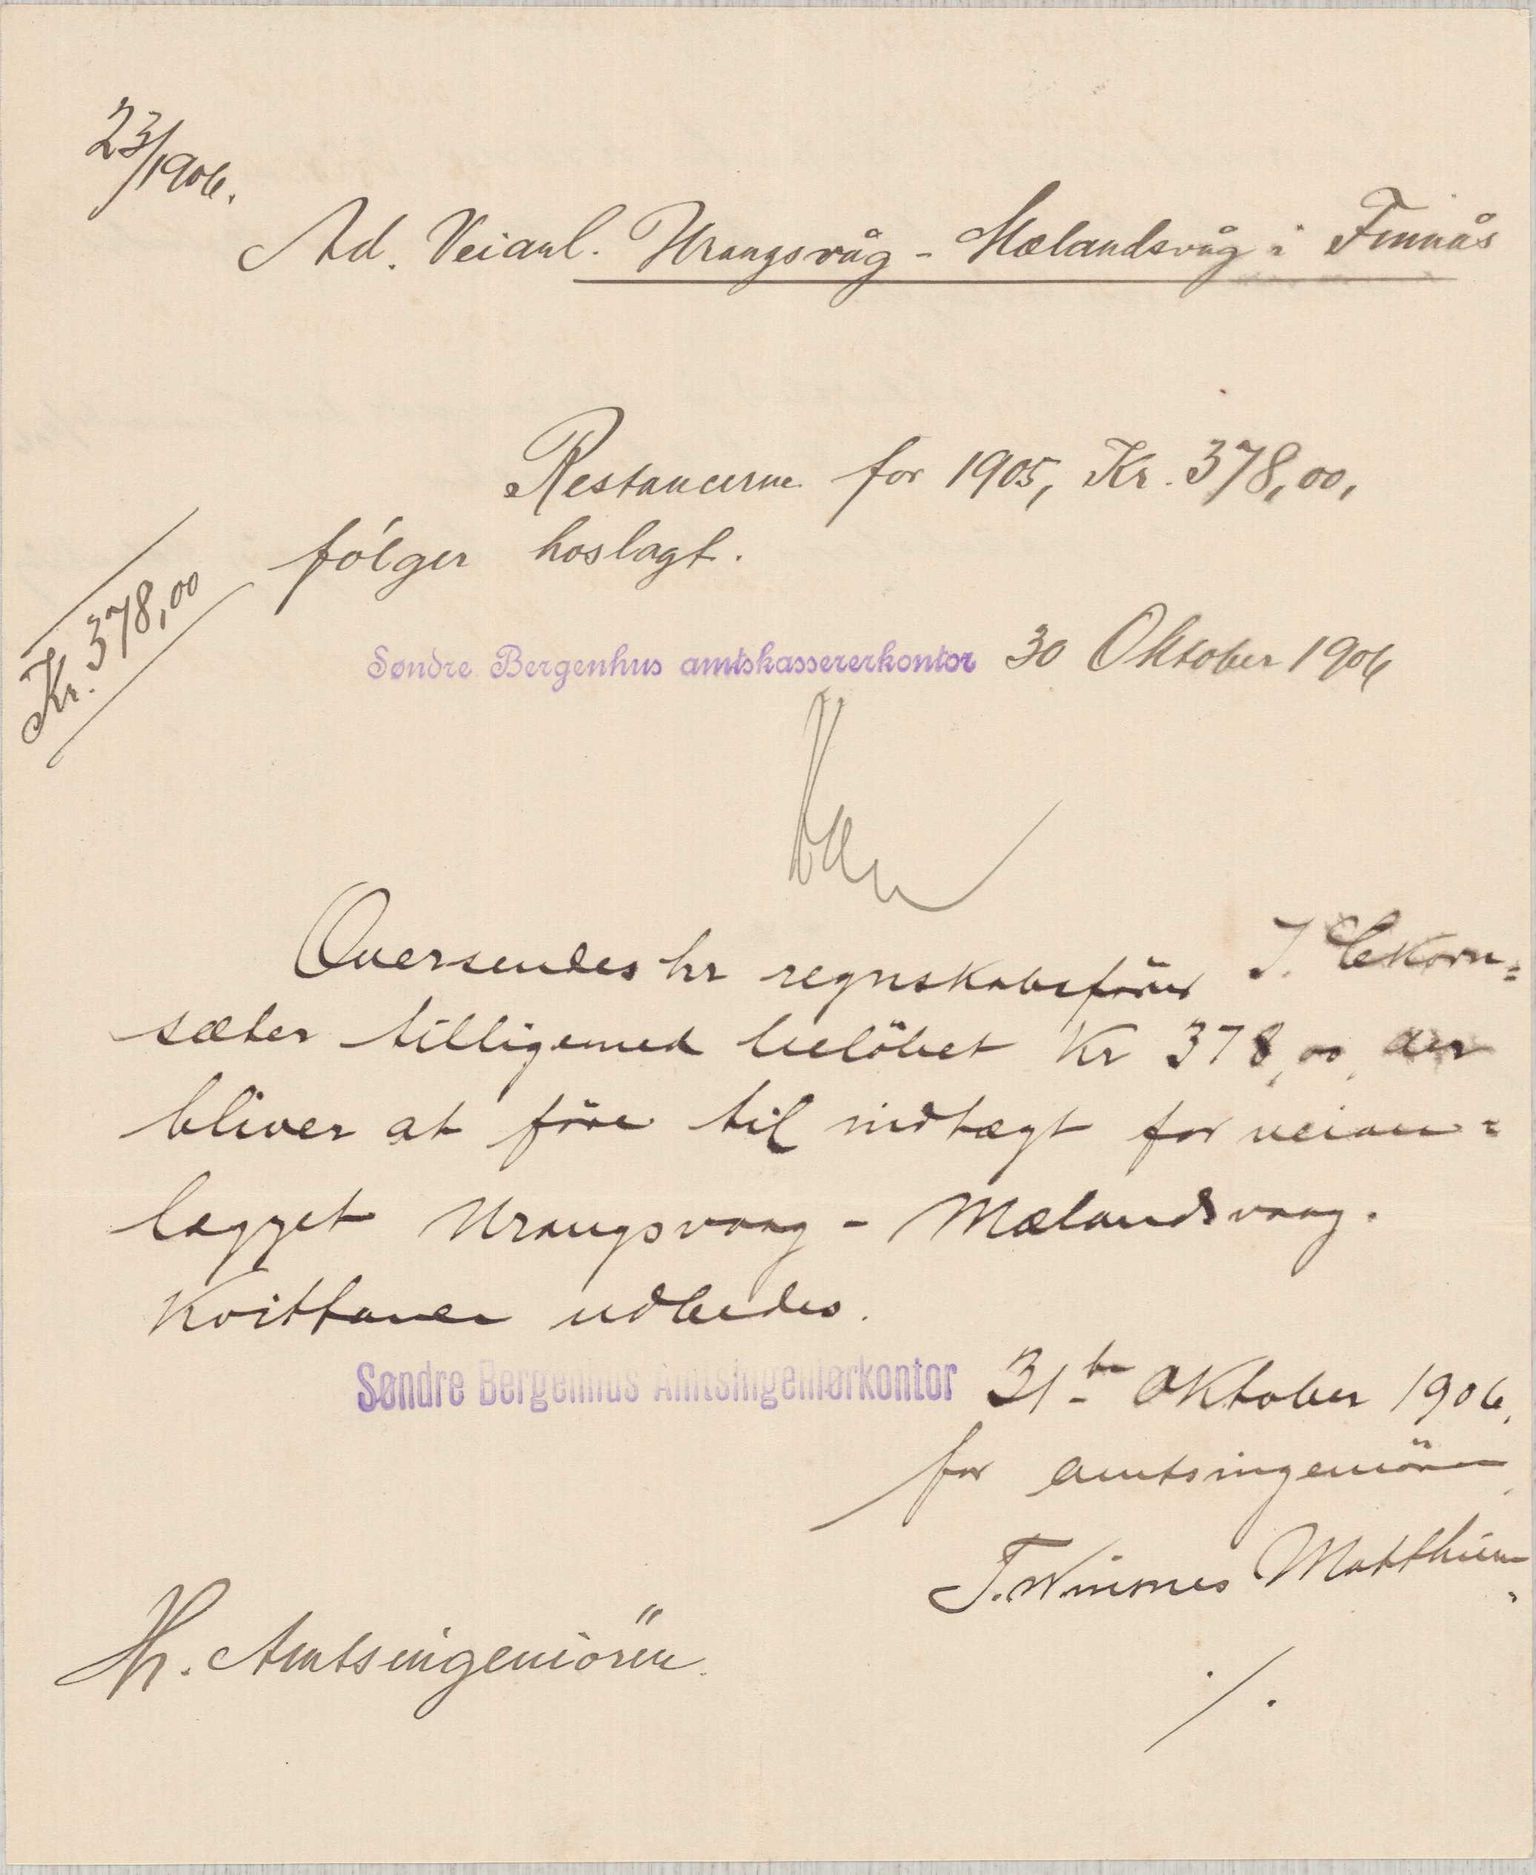 23/1906.
Ad. Veianl. Urangsvåg - Mælandsvåg i Finnås
Restancerne for 1905, Kr. 378,00,
følger hoslagt.
Kr. 378,00
Søndre Bergenhus amtskassererkontor 30 Oktober 1906
Oversendes hr regnskabsfører J. Ekorn=
sæter tilligemed beløbet Kr 378,00, der
bliver at føre til indtægt for veian=
lægget Urangsvaag - Mælandsvaag.
Kvittering udbedes.
Søndre Bergenhus Amtsingeniørkontor 31te Oktober 1906.
for amtsingeniøren
T. Matthiesen
Hr. Amtsingeniøren.
./.